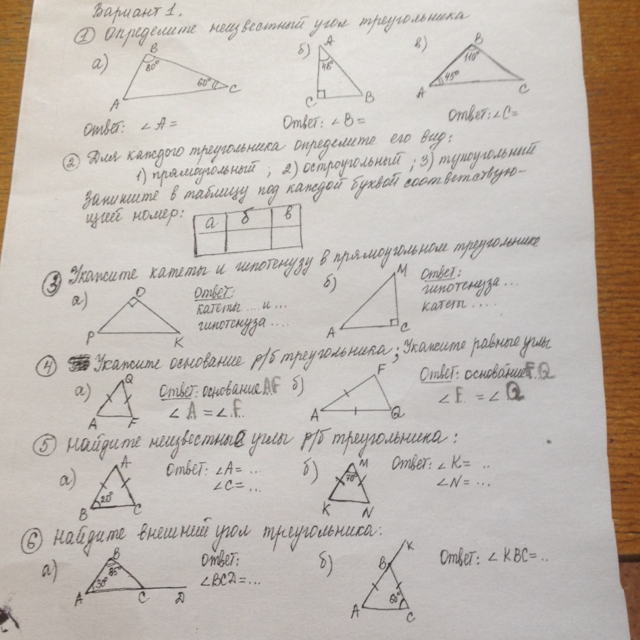 Вариант 1.
① Определите неизвестный угол треугольника
а) B 80° 60° A C б) A 48° C B в) B 110° 45° A C
Ответ: ∠A= Ответ: ∠B= Ответ: ∠C=
② Для каждого треугольника определите его вид:
1) прямоугольный; 2) остроугольный; 3) тупоугольный
Запишите в таблицу под каждой буквой соответствую-
щией номер: а б в
③ Укажите катеты и гипотенузу в прямоугольном треугольнике
а) O P K Ответ: катеты ... и ... гипотенуза ....
б) M A C Ответ: гипотенуза ... катеты ....
④ Укажите основание р/б треугольника; Укажите равные углы
а) Q A F Ответ: основание AF ∠A = ∠F.
б) F A Q Ответ: основание F.Q ∠F = ∠Q
⑤ Найдите неизвестные углы р/б треугольника:
а) A B 20° C Ответ: ∠A= ... ∠C= ...
б) M 70° K N Ответ: ∠K= .. ∠N= ...
⑥ Найдите внешний угол треугольника:
а) B 85° 30° A C D Ответ: ∠BCD=...
б) K B A 60° C Ответ: ∠KBC=..